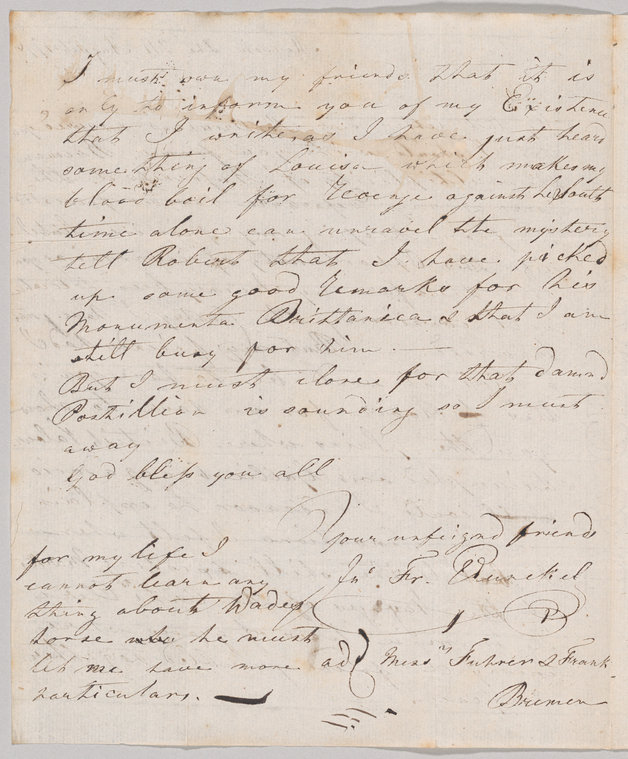 I must own my friends that it is
only to inform you of my Existence
that I write as I have just heard
something of Louisa which makes my
blood boil for revenge against
time alone can unravel the mystery
tell Robert that I have picked
up some good remarks for his
Monumenta Brittanica & that I am
still busy for him. —
But I must close for that damnd
Postillion is sounding so I must
away
God bless you all
your unfeignd friends
Jno. Fr.
for my life I
cannot learn any
thing about Wades
horse he must
let me have more
particulars. —
ad Messrs Fuhrer & Frank
Bremen